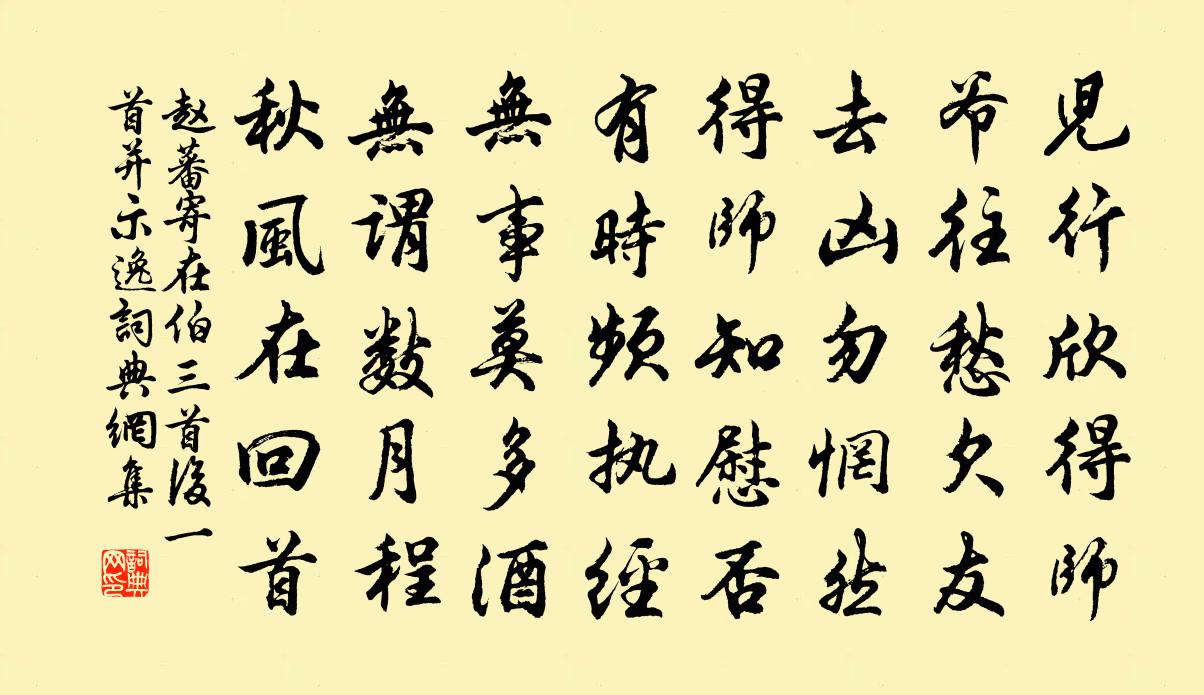 児行欣得師
爷往愁欠友
去凶勿惘然
得師知慰否
有時頻执經
無事莫多酒
無謂数月程
秋風在回首
赵蕃寄在伯三首後一
首并示逸詞典網集
詞典網印